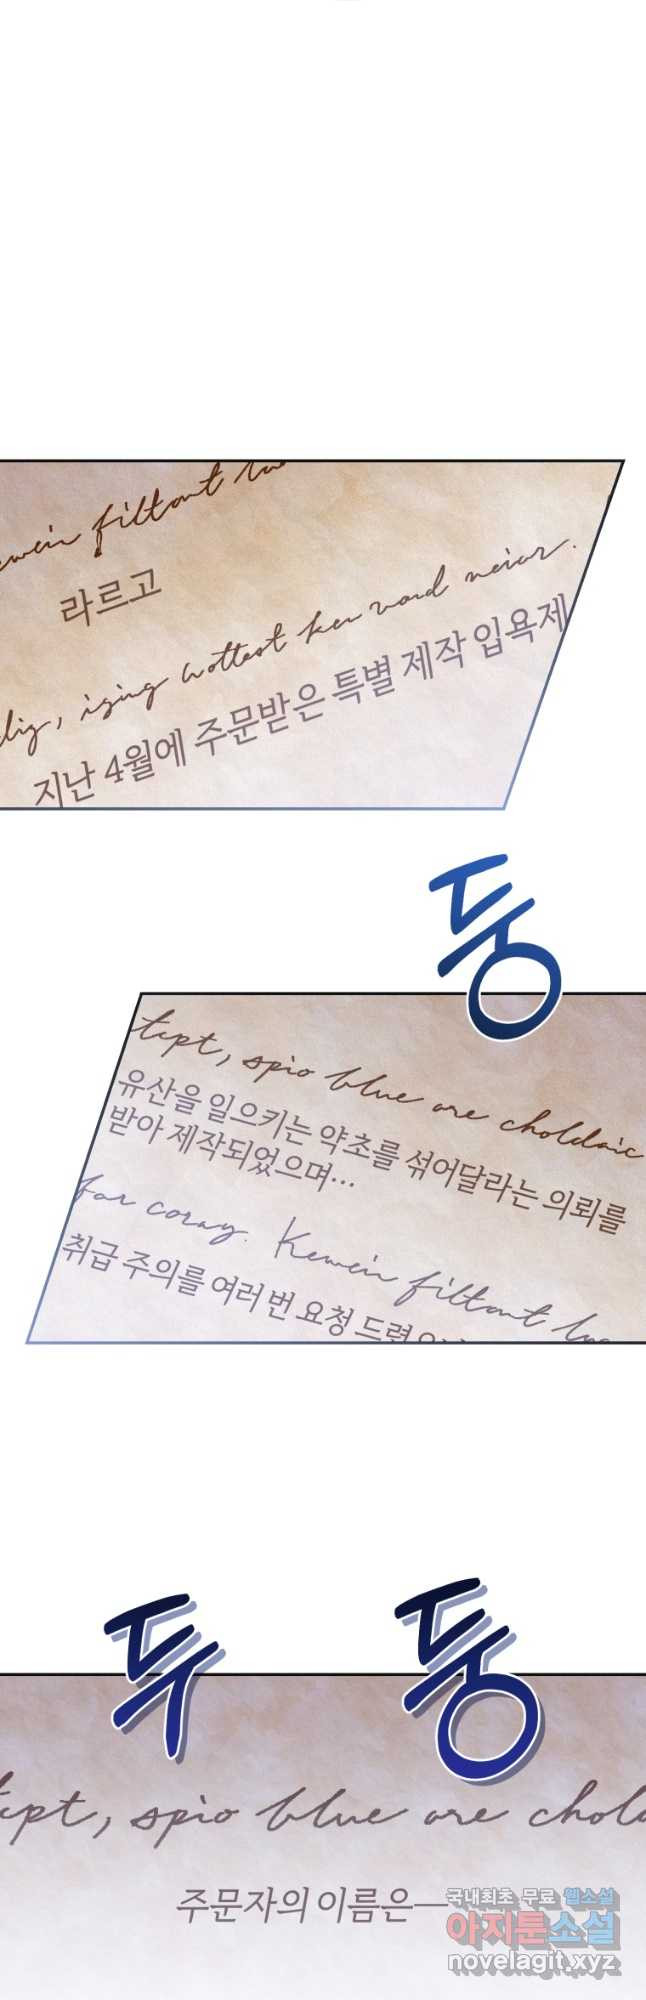 filtont
라르고
지난 4월에 주문받은 특별 제작 입욕제
둥
tept, spio blue are choldaic
유산을 일으키는 약초를 섞어달라는 의뢰를
받아 제작되었으며...
for coray. Kewein filtont
취급 주의를 여러 번 요청 드렸
두 둥
tept, spio blue are
주문자의 이름은—
국내최초 무료 웹소설
아지툰소설
novelagit.xyz